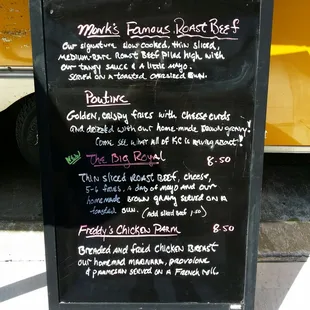 Mark's Famous Roast Beef
Our signature slow cooked, thin sliced,
medium-rare Roast Beef piled high with
our tangy sauce & a little mayo.
Served on a toasted oversized Bun.
Poutine
Golden, crispy fries with cheese curds
and with our home-made brown gravy!
Come see what all of KC is raving about!
NEW The Big Royal 8.50
Thin sliced Roast Beef, cheese,
5-6 fries, a dab of mayo and our
homemade brown gravy served on a
toasted Bun. (Add sliced Beef
Freddy's Chicken Parm 8.50
Breaded and fried Chicken Breast
our homemade marinara, provolone
& parmesan served on a French roll